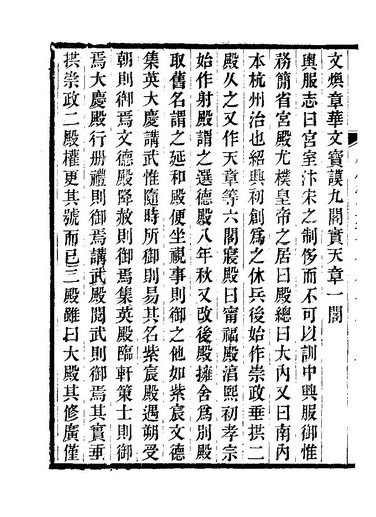 文煥章華文寶謨九閣實天章一閣
輿服志曰宮室汴宋之制侈而不可以訓中興服御惟
務簡省宮殿尤樸皇帝之居曰殿總曰大內又曰南內
本杭州治也紹興初創爲之休兵後始作崇政垂拱二
殿久之又作天章等六閣寢殿曰福寧殿淳熙初孝宗
始作射殿謂之選德殿八年秋又改後殿擁舍爲別殿
取舊名謂之延和殿便坐視事則御之他如紫宸文德
集英大慶講武惟隨時所御則易其名紫宸殿遇朔受
朝則御焉文德殿降赦則御焉集英殿臨軒策士則御
焉大慶殿行册禮則御焉講武殿閱武則御焉其實垂
拱崇政二殿權更其號而已二殿雖曰大殿其修廣僅